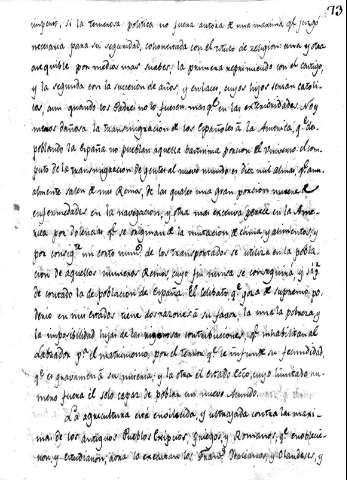 73
imperio, si la temerosa politica no fuera autora de una maxima qe. juzgó
necesaria para su seguridad, cohonestada con el titulo de religion: una y otra
asequible por medios mas suabes: la primera reprimiendo con el castigo,
y la segunda con la sucesion de años, y enlaces, cuyos hijos serian catoli-
cos, aun quando los Padres no lo fuesen mas qe. en las exterioridades. No es
menos dañosa la transmigracion de los Españoles á la America, qe. des-
poblando la España no pueblan aquella bastisima porcion del Universo: el com-
puto de la transmigracion de gentes al nuevo mundo es diez mil almas, qe. anu-
almente salen de mis Reinos, de las quales una gran porcion muere de
enfermedades en la navegacion, y otra mas excesiva perece en la Ame-
rica por dolencias qe. se originan de la mutacion de clima y alimentos, y
por consigte. un corto numo. de los transportados se utiliza en la pobla-
cion de aquellos inmensos Reinos cuyo fin nunca se conseguirá, y sí
de contado la despoblacion de España. El celibato qe. goza de supremo po-
derio en mis estados tiene dos razones á su favor: la una la pobreza, y
la imposibilidad hijas de las rigorosas contribuciones, qe. inhabilitan al
labrador pa. el matrimonio, por el temor qe. le infunde su fecundidad,
qe. es gravamen á su miseria: y la otra el estado Ecco. cuyo limitado nu-
mero fuera él solo capaz de poblar un nuevo Mundo.
La agricultura está envilecida, y ultrajada contra las maxi-
mas de los Antiguos Pueblos Exipcios, Griegos, y Romanos, qe. enoblecie-
ron, y estudiaron, aora la exercitan los Italianos, y Olandeses, y